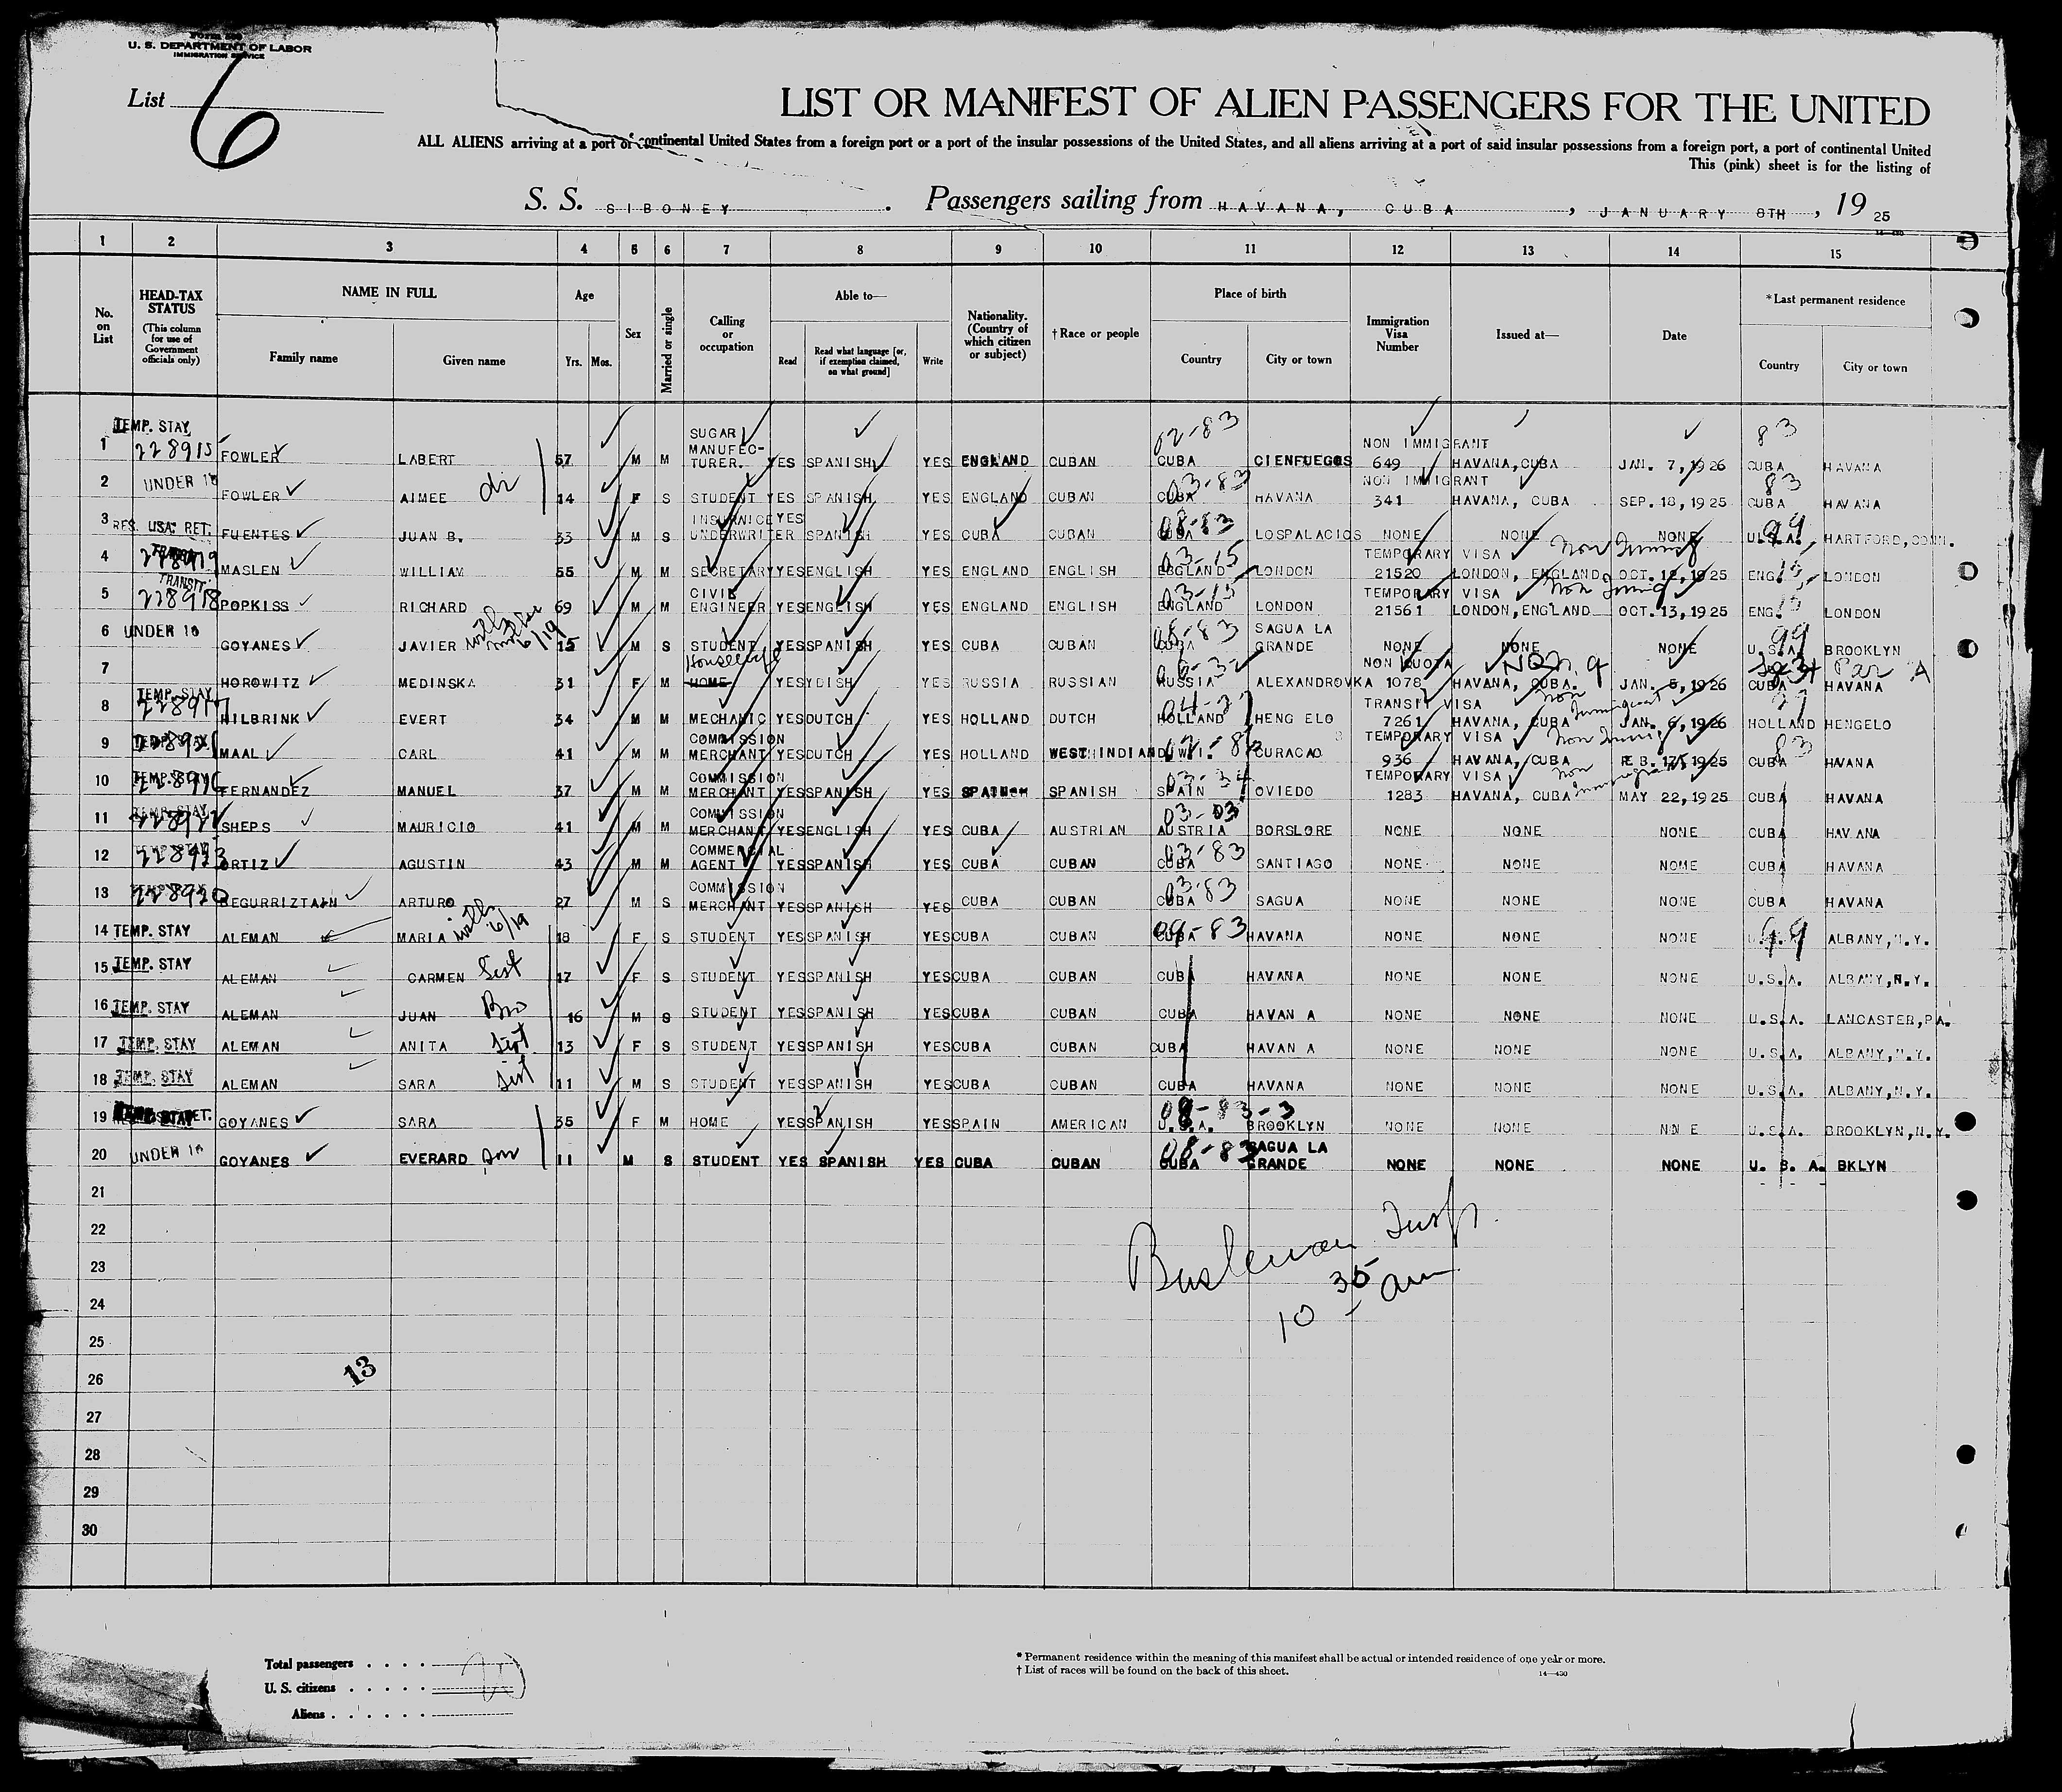 U. S. DEPARTMENT OF LABOR
IMMIGRATION SERVICE
List 6
LIST OR MANIFEST OF ALIEN PASSENGERS FOR THE UNITED
ALL ALIENS arriving at a port of continental United States from a foreign port or a port of the insular possessions of the United States, and all aliens arriving at a port of said insular possessions from a foreign port, a port of continental United
This (pink) sheet is for the listing of
S. S. SIBONEY . Passengers sailing from HAVANA, CUBA , JANUARY 8TH , 19 25
1 2 3 4 5 6 7 8 9 10 11 12 13 14 15
No. on List
HEAD-TAX STATUS (This column for use of Government officials only)
NAME IN FULL Family name Given name
Age Yrs. Mos.
Sex
Married or single
Calling or occupation
Able to— Read Read what language [or, if exemption claimed, on what ground] Write
Nationality. (Country of which citizen or subject)
† Race or people
Place of birth Country City or town
Immigration Visa Number
Issued at—
Date
* Last permanent residence Country City or town
1 TEMP. STAY 228915 FOWLER LABERT 57 M M SUGAR MANUFEC-TURER. YES SPANISH YES ENGLAND CUBAN 02-83 CUBA CIENFUEGOS NON IMMIGRANT 649 HAVANA, CUBA JAN. 7, 1926 83 CUBA HAVANA
2 UNDER 16 FOWLER AIMEE 14 F S STUDENT YES SPANISH YES ENGLAND CUBAN 03-83 CUBA HAVANA NON IMMIGRANT 341 HAVANA, CUBA SEP. 18, 1925 83 CUBA HAVANA
3 RES. USA. RET. FUENTES JUAN B. 33 M S INSURNICE UNDERWRITER YES SPANISH YES CUBA CUBAN 08-83 CUBA LOSPALACIOS NONE NONE NONE 99 U.S.A. HARTFORD, CONN.
4 MASLEN WILLIAM 55 M M SECRETARY YES ENGLISH YES ENGLAND ENGLISH 03-15 ENGLAND LONDON TEMPORARY VISA 21520 LONDON, ENGLAND OCT. 12, 1925 ENG. LONDON
5 TRANSIT. 228918 POPKISS RICHARD 69 M M CIVIL ENGINEER YES ENGLISH YES ENGLAND ENGLISH 03-15 ENGLAND LONDON TEMPORARY VISA 21561 LONDON, ENGLAND OCT. 13, 1925 ENG. LONDON
6 UNDER 16 GOYANES JAVIER with mother 6/19 15 M S STUDENT YES SPANISH YES CUBA CUBAN 08-83 CUBA SAGUA LA GRANDE NONE NONE NONE 99 U.S.A. BROOKLYN
7 HOROWITZ MEDINSKA 31 F M Housewife HOME YES YDISH YES RUSSIA RUSSIAN RUSSIA ALEXANDROVKA NON QUOTA 1078 HAVANA, CUBA. JAN. 5, 1926 CUBA HAVANA
8 TEMP. STAY 228917 HILBRINK EVERT 34 M M MECHANIC YES DUTCH YES HOLLAND DUTCH 04-27 HOLLAND HENG ELO TRANSIT VISA 7261 HAVANA, CUBA JAN. 6, 1926 27 HOLLAND HENGELO
9 MAAL CARL 41 M M COMMISSION MERCHANT YES DUTCH YES HOLLAND WEST INDIAN CURACAO TEMPORARY VISA 936 HAVANA, CUBA FEB. 17, 1925 83 CUBA HAVANA
10 FERNANDEZ MANUEL 37 M M COMMISSION MERCHANT YES SPANISH YES SPANISH 03-34 SPAIN OVIEDO TEMPORARY VISA 1283 HAVANA, CUBA MAY 22, 1925 CUBA HAVANA
11 SHEPS MAURICIO 41 M M COMMISSION MERCHANT YES ENGLISH YES CUBA AUSTRIAN 03-03 AUSTRIA BORSLORE NONE NONE NONE CUBA HAVANA
12 ORTIZ AGUSTIN 43 M M COMMERCIAL AGENT YES SPANISH YES CUBA CUBAN 03-83 CUBA SANTIAGO NONE NONE NOME CUBA HAVANA
13 BEGURRIZTAIN ARTURO 27 M S COMMISSION MERCHANT YES SPANISH YES CUBA CUBAN 03-83 CUBA SAGUA NONE NONE NONE CUBA HAVANA
14 TEMP. STAY ALEMAN MARIA 18 F S STUDENT YES SPANISH YES CUBA CUBAN 09-83 CUBA HAVANA NONE NONE NONE 99 ALBANY, N.Y.
15 TEMP. STAY ALEMAN CARMEN Sist 17 F S STUDENT YES SPANISH YES CUBA CUBAN CUBA HAVANA NONE NONE NONE U.S.A. ALBANY, N.Y.
16 TEMP. STAY ALEMAN JUAN Bro 16 M S STUDENT YES SPANISH YES CUBA CUBAN CUBA HAVAN A NONE NONE NONE U.S.A. LANCASTER, PA.
17 TEMP. STAY ALEMAN ANITA Sist 13 F S STUDENT YES SPANISH YES CUBA CUBAN CUBA HAVAN A NONE NONE NONE U.S.A. ALBANY, N.Y.
18 TEMP. STAY ALEMAN SARA Sist 11 M S STUDENT YES SPANISH YES CUBA CUBAN CUBA HAVANA NONE NONE NONE U.S.A. ALBANY, N.Y.
19 GOYANES SARA 35 F M HOME YES SPANISH YES SPAIN AMERICAN U.S.A. BROOKLYN NONE NONE NN E U.S.A. BROOKLYN, N.Y.
20 UNDER 16 GOYANES EVERARD son 11 M S STUDENT YES SPANISH YES CUBA CUBAN 08-83 CUBA SAGUA LA GRANDE NONE NONE NONE U. S. A. BKLYN
21
22
23
24
25
26
27
28
29
30
10 35 am
13
Total passengers . . . . 20
U. S. citizens . . . . .
Aliens . . . . . .
* Permanent residence within the meaning of this manifest shall be actual or intended residence of one year or more.
† List of races will be found on the back of this sheet.
14—430